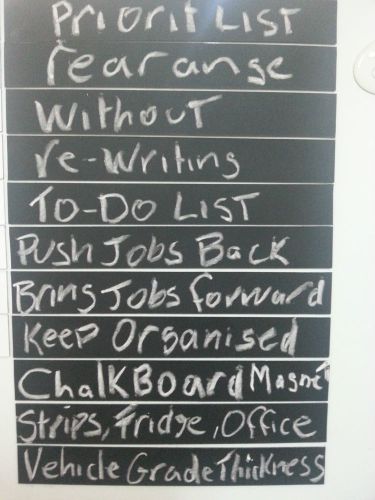 Priorit List
rearange
Without
re-Writing
To-Do List
Push Jobs Back
Bring Jobs forward
Keep Organised
ChalKBoard Magnet
Strips, Fridge, Office
Vehicle Grade Thickness